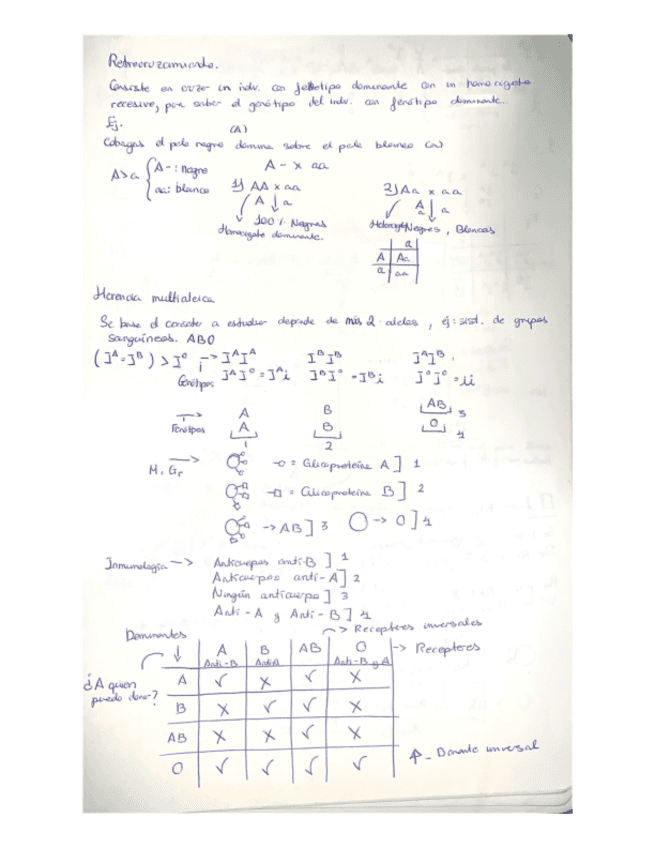 Retrocruzamiento.
Consiste en cruzar un indv. con fenotipo dominante con un homocigoto
recesivo, para saber el genotipo del indv. con fenotipo dominante.
Ej. (A)
Cobayas el pelo negro domina sobre el pelo blanco (a)
A>a { A- : negro
aa: blanco
A- x aa
1) AA x aa
A ↓ a
100% Negros
Homocigoto dominante.
2) Aa x aa
A
a ↓ a
Negros, Blancos
a
A | Aa
a | aa
Herencia multialelica
Se basa el caracter a estudiar depende de más 2 alelos, ej: sist. de grupos
sanguíneos. ABO
(Iᴬ=Iᴮ) > I⁰ → IᴬIᴬ IᴮIᴮ IᴬIᴮ
i
Genótipos IᴬI⁰ = Iᴬi IᴮI⁰ = Iᴮi I⁰I⁰ = ii
→ A B AB 3
Fenótipos A B O 4
1 2
→ -o = Glicoproteína A ] 1
-□ = Glicoproteína B ] 2
→ AB ] 3 O → O ] 4
Inmunología → Anticuerpos anti-B ] 1
Anticuerpos anti-A ] 2
Ningún anticuerpo ] 3
Anti-A y Anti-B ] 4
→ Receptores universales
↓ A B AB O → Receptores
Anti-B AntiA Anti-B y A
¿A quien puedo donar?
A ✓ X ✓ X
B X ✓ ✓ X
AB X X ✓ X
O ✓ ✓ ✓ ✓
- Donante universal